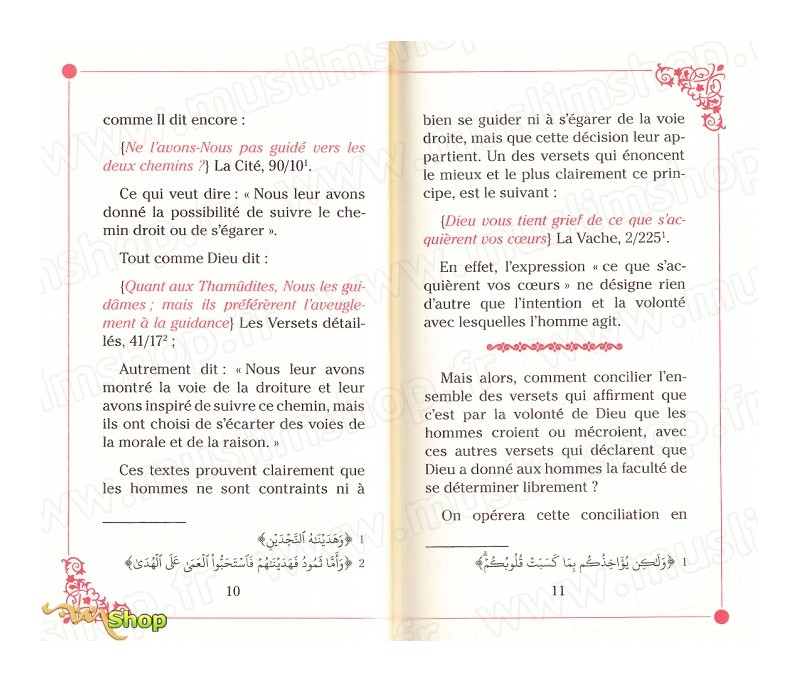 comme Il dit encore :
{Ne l'avons-Nous pas guidé vers les
deux chemins ?} La Cité, 90/10¹.
Ce qui veut dire : « Nous leur avons
donné la possibilité de suivre le che-
min droit ou de s'égarer ».
Tout comme Dieu dit :
{Quant aux Thamûdites, Nous les gui-
dâmes ; mais ils préférèrent l'aveugle-
ment à la guidance} Les Versets détail-
lés, 41/17² ;
Autrement dit : « Nous leur avons
montré la voie de la droiture et leur
avons inspiré de suivre ce chemin, mais
ils ont choisi de s'écarter des voies de
la morale et de la raison. »
Ces textes prouvent clairement que
les hommes ne sont contraints ni à
1 ﴿وَهَدَيْنَاهُ النَّجْدَيْنِ﴾
2 ﴿وَأَمَّا ثَمُودُ فَهَدَيْنَاهُمْ فَاسْتَحَبُّوا الْعَمَىٰ عَلَى الْهُدَىٰ﴾
10
bien se guider ni à s'égarer de la voie
droite, mais que cette décision leur ap-
partient. Un des versets qui énoncent
le mieux et le plus clairement ce prin-
cipe, est le suivant :
{Dieu vous tient grief de ce que s'ac-
quièrent vos cœurs} La Vache, 2/225¹.
En effet, l'expression « ce que s'ac-
quièrent vos cœurs » ne désigne rien
d'autre que l'intention et la volonté
avec lesquelles l'homme agit.
Mais alors, comment concilier l'en-
semble des versets qui affirment que
c'est par la volonté de Dieu que les
hommes croient ou mécroient, avec
ces autres versets qui déclarent que
Dieu a donné aux hommes la faculté de
se déterminer librement ?
On opérera cette conciliation en
1 ﴿وَلَٰكِن يُؤَاخِذُكُم بِمَا كَسَبَتْ قُلُوبُكُمْ ۗ﴾
11
www.muslimshop.fr
Shop